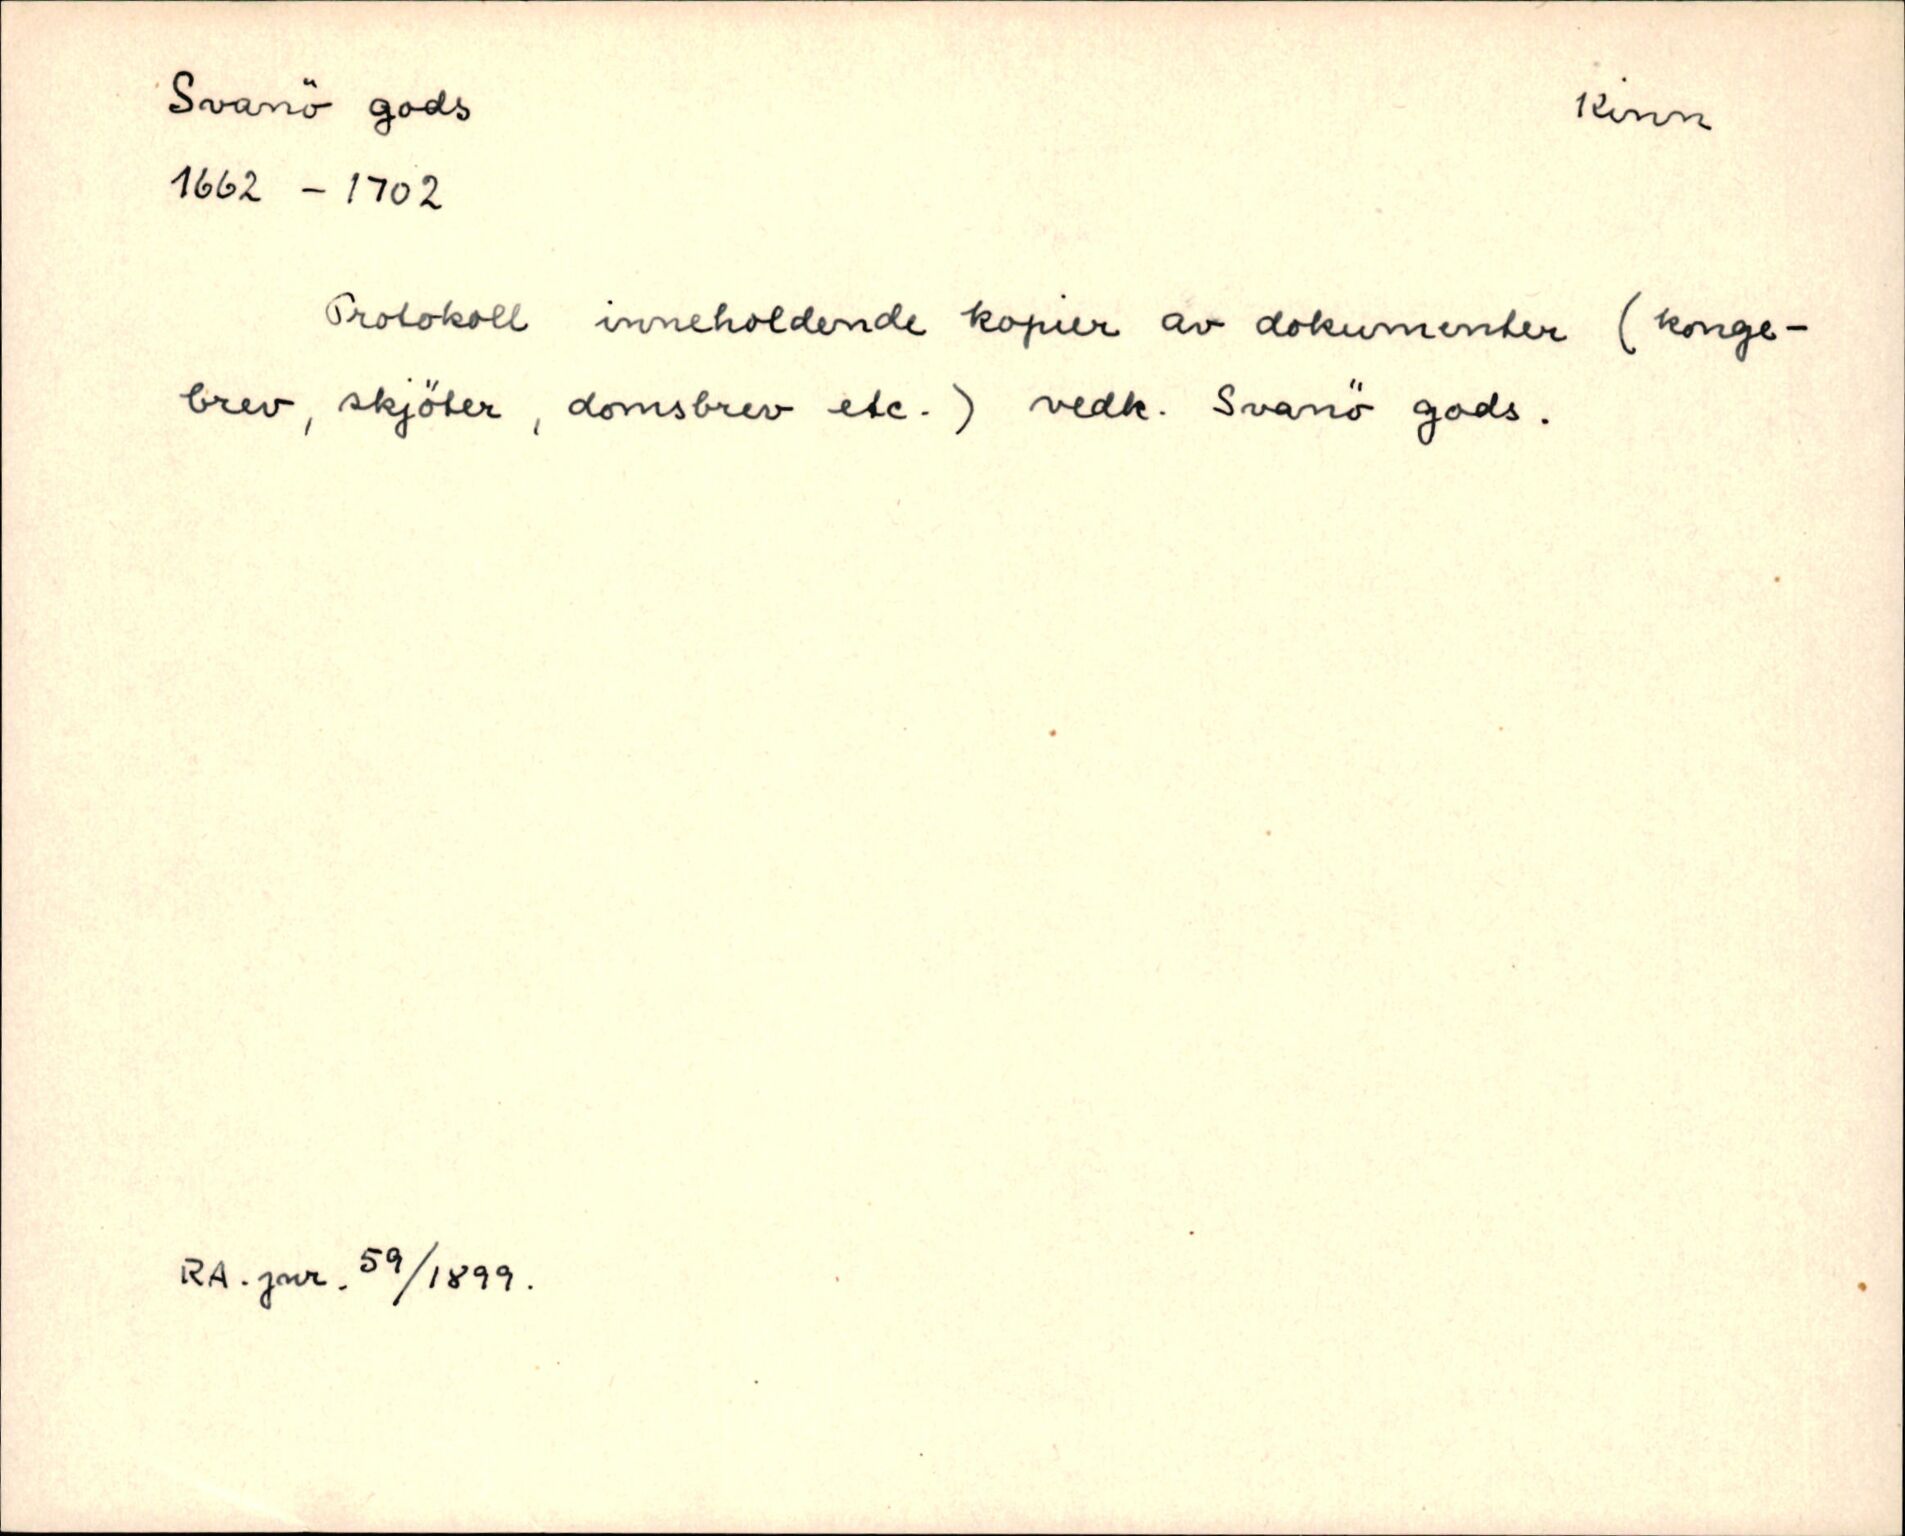 Svanö gods
Kinn
1662 - 1702
Protokoll inneholdende kopier av dokumenter (konge-
brev, skjöter, domsbrev etc.) vedk. Svanö gods.
RA. jnr. 59/1899.